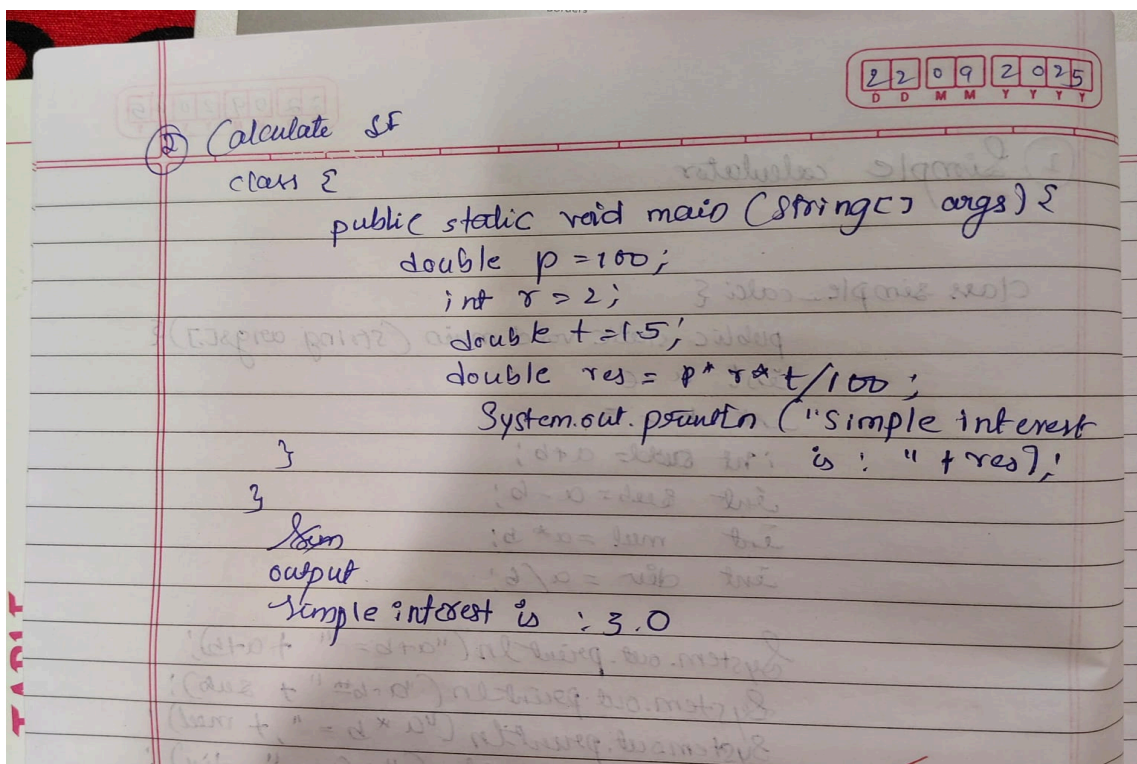 22 09 2025
D D M M Y Y Y Y
② Calculate SI
class {
public static void main (String[] args) {
double p = 100;
int r = 2;
double t = 1.5;
double res = p* r* t/100;
System.out.println ("simple interest
is : " + res);
}
}
output
simple interest is : 3.0